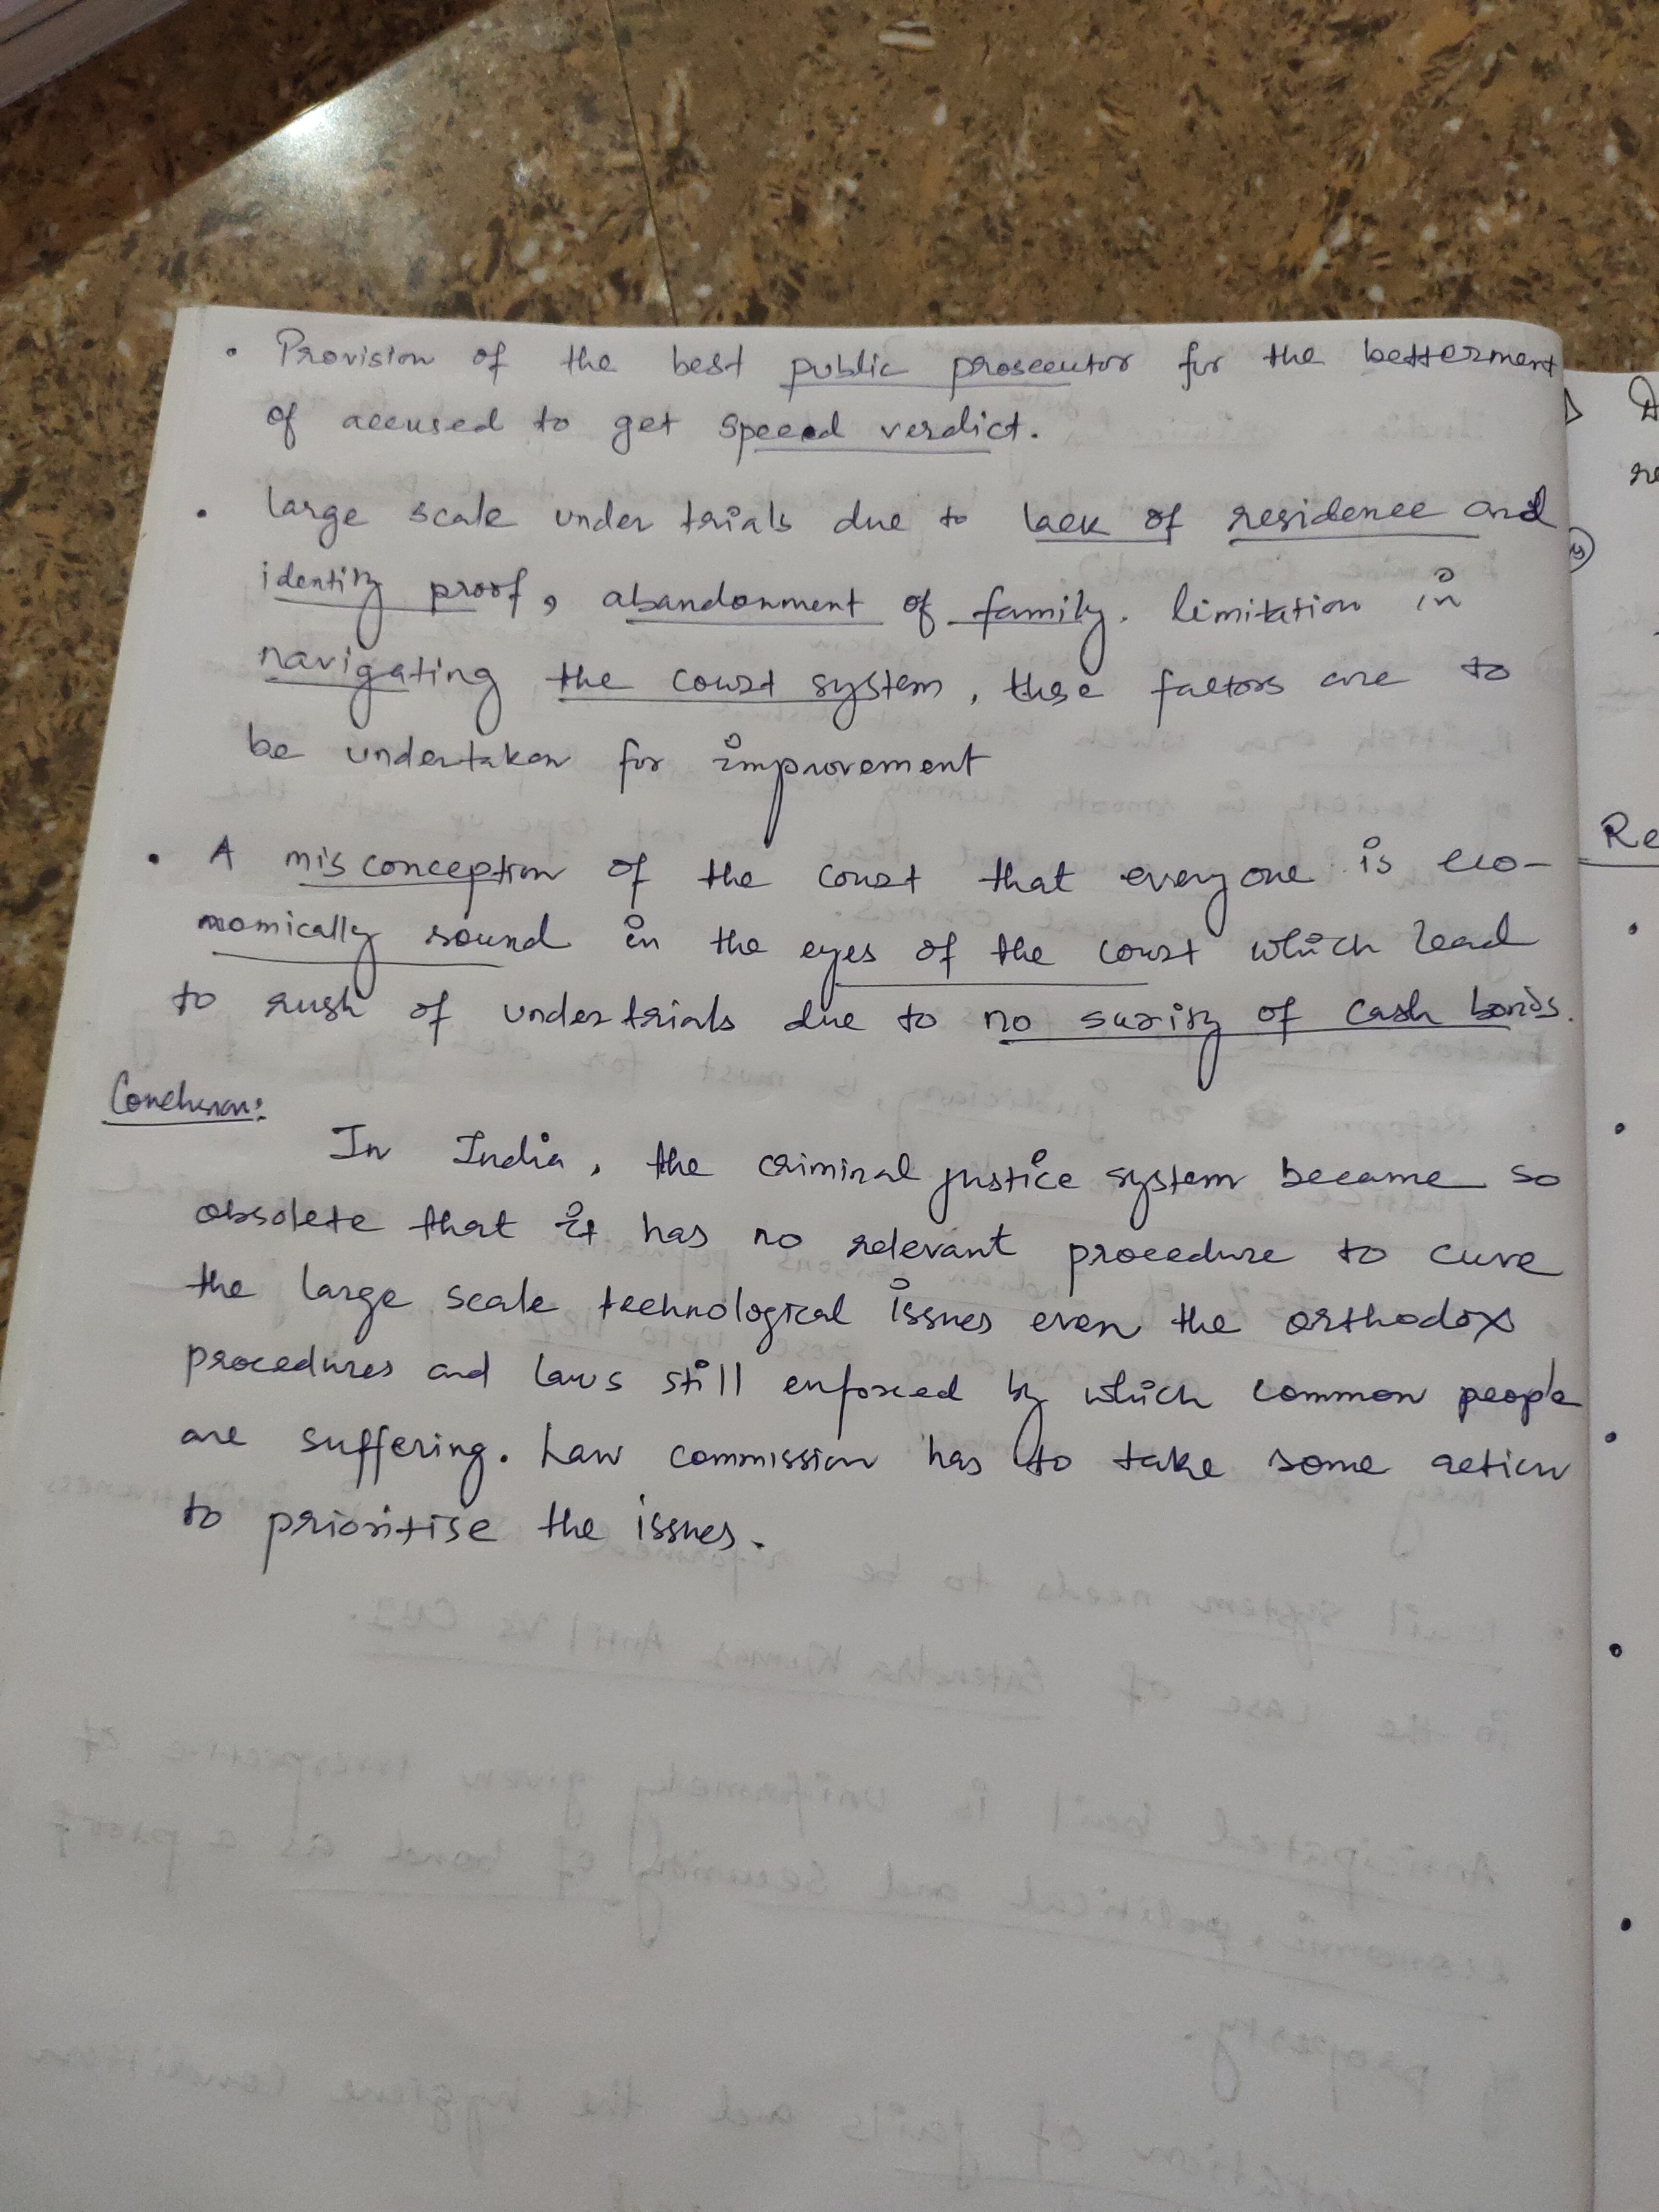 • Provision of the best public prosecutor for the betterment
of accused to get speed verdict.
• large scale under trials due to lack of residence and
identity proof, abandonment of family. limitation in
navigating the court system, these factors are to
be undertaken for improvement
• A misconception of the court that everyone is eco-
nomically sound in the eyes of the court which lead
to rush of undertrials due to no surity of cash bonds.
Conclusion:
In India, the criminal justice system became so
obsolete that it has no relevant procedure to cure
the large scale technological issues even the orthodox
procedures and laws still enforced by which common people
are suffering. Law commission has to take some action
to prioritise the issues.
Re